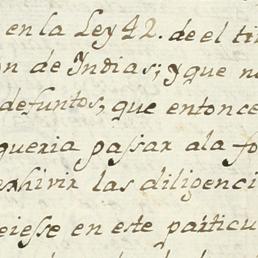 en la Ley 42. de el tit
on de Indias; y que n
defuntos, que entonce
queria passar a la fo
exhivir las diligenci
eiesse en este particu